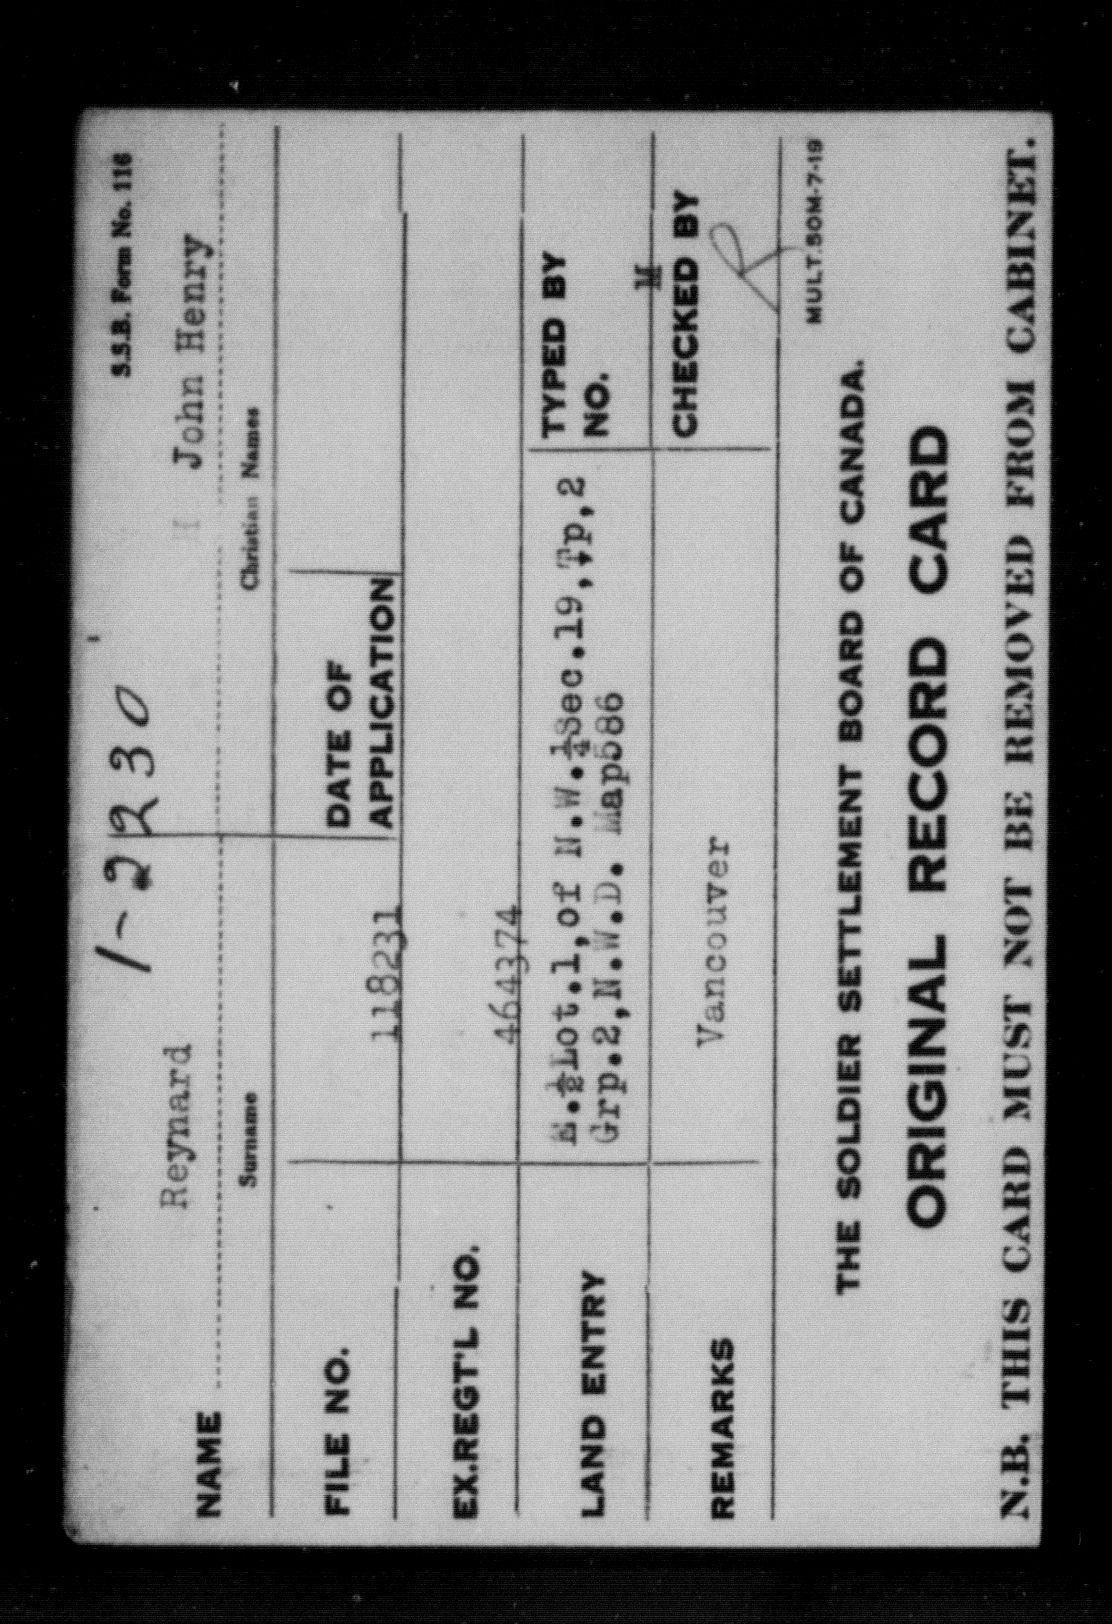 1-2230
S.S.B. Form No. 116
NAME Reynard John Henry
Surname Christian Names
FILE NO. 118231 DATE OF APPLICATION
EX.REGT'L NO. 464374
LAND ENTRY E.½Lot.1,of N.W.¼Sec.19,Tp,2
Grp.2,N.W.D. Map586
TYPED BY
NO. M
REMARKS Vancouver
CHECKED BY R
MULT.50M-7-19
THE SOLDIER SETTLEMENT BOARD OF CANADA.
ORIGINAL RECORD CARD
N.B. THIS CARD MUST NOT BE REMOVED FROM CABINET.